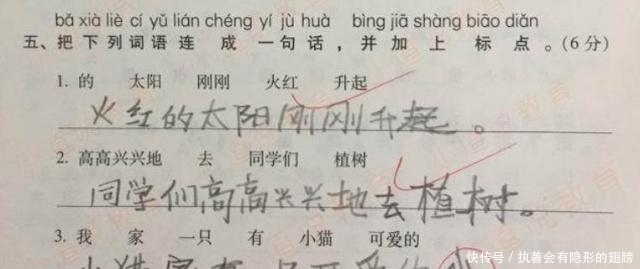 bǎ xià liè cí yǔ lián chéng yí jù huà bìng jiā shàng biāo diǎn
五、把下列词语连成一句话，并加上标点。(6分)
1. 的 太阳 刚刚 火红 升起
火红的太阳刚刚升起。
2. 高高兴兴地 去 同学们 植树
同学们高高兴兴地去植树。
3. 我 家 一只 有 小猫 可爱的
快传号/执著会有隐形的翅膀